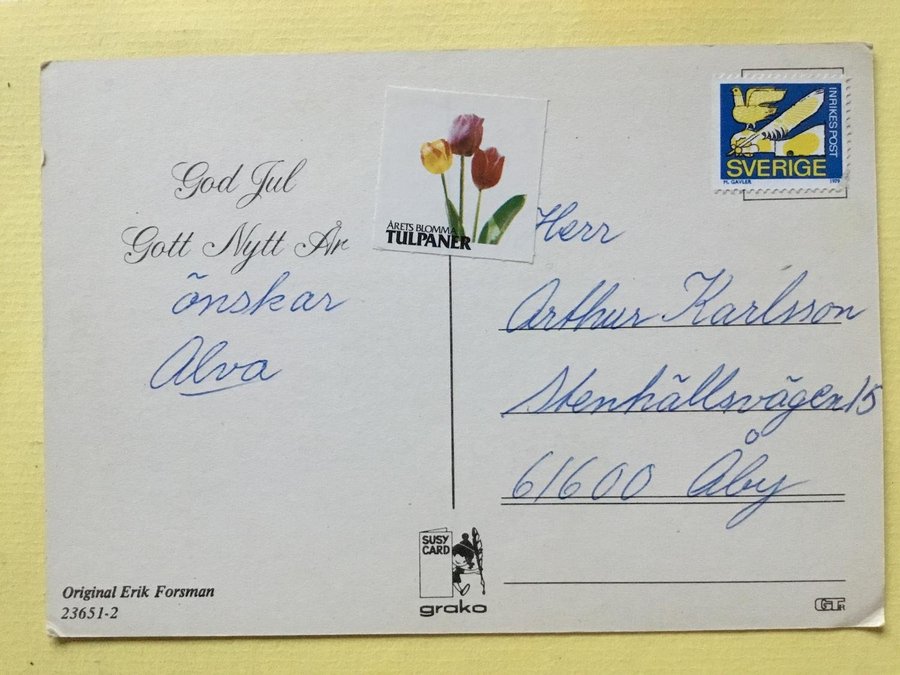 God Jul
Gott Nytt År
önskar
Alva
ÅRETS BLOMMA
TULPANER
INRIKES POST
SVERIGE
M. GAVLER 1979
Herr
Arthur Karlsson
Stenhällsvägen 15
61600 Åby
SUSY
CARD
grako
Original Erik Forsman
23651-2